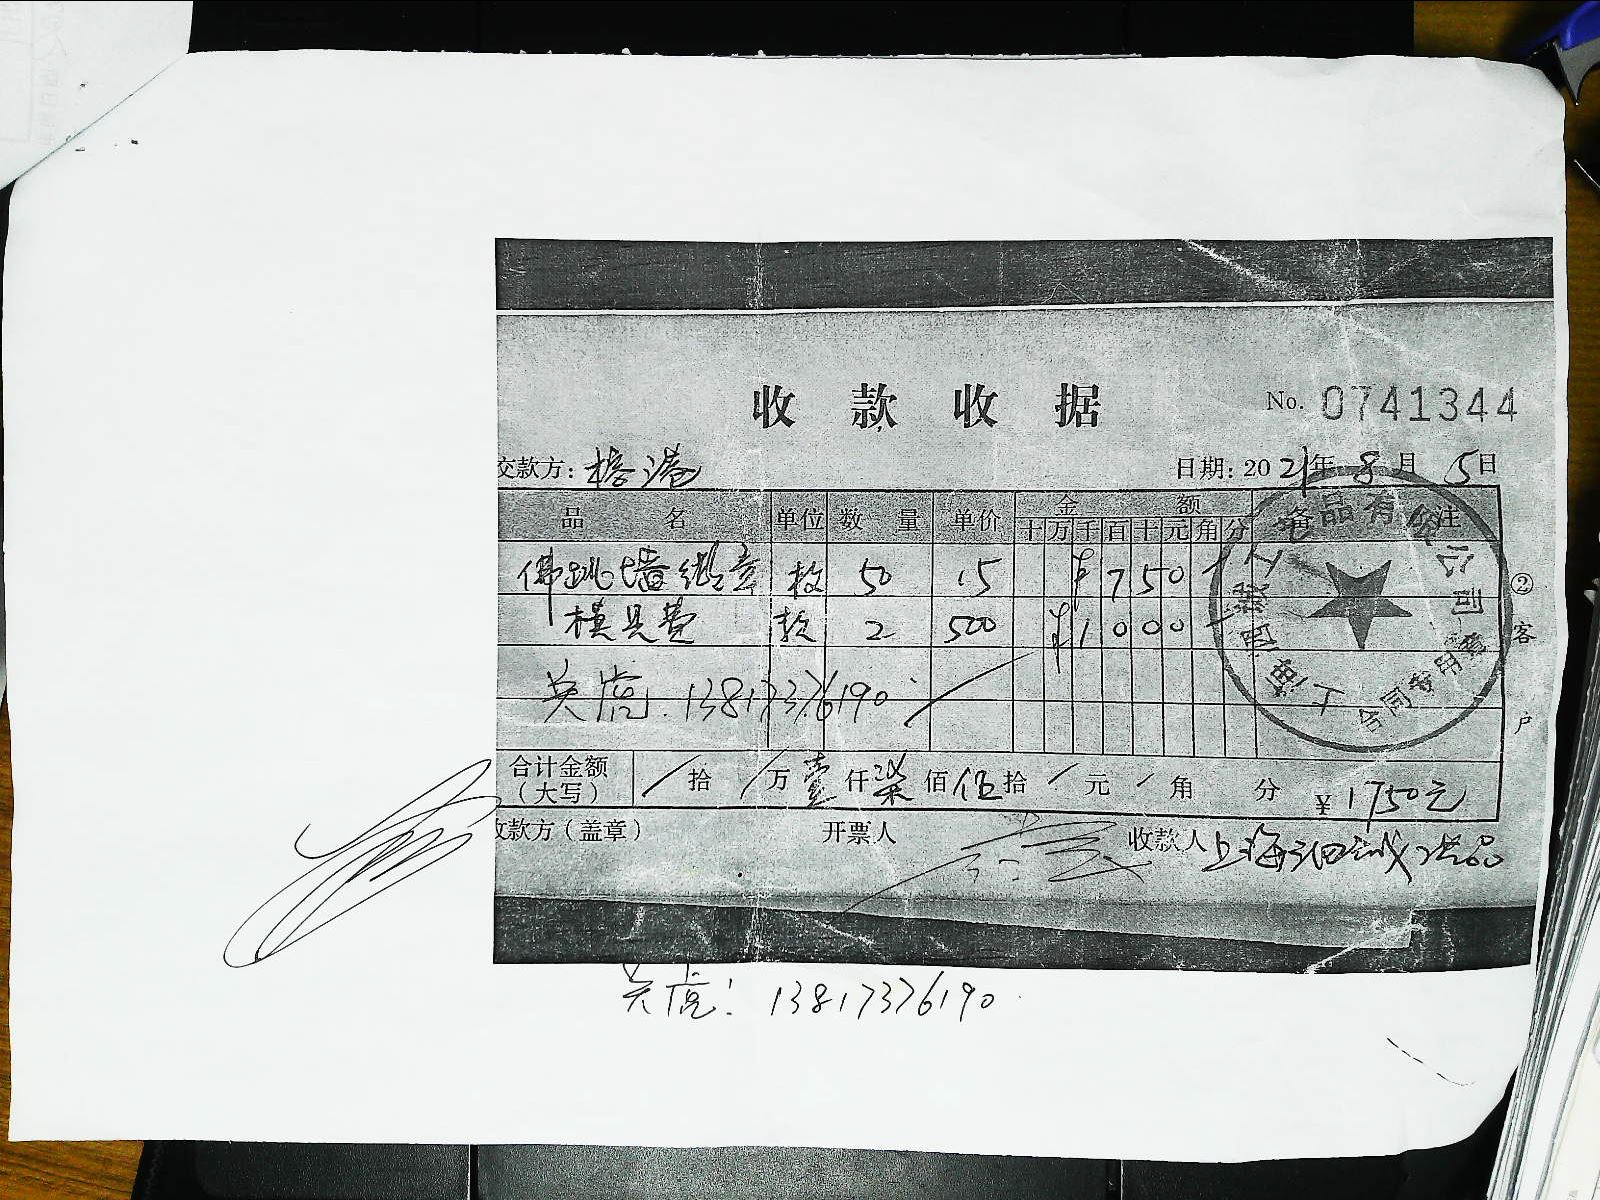 收款收据
No. 0741344
交款方:榕港
日期:2021年8月5日
品名 单位 数量 单价 金额 备注
十万千百十元角分
佛跳墙徽章 枚 50 15 ¥750
模具费 款 2 500 ¥1000
吴虎.13817376190
合计金额(大写) / 拾 / 万壹仟柒佰伍拾 / 元 / 角 分 ¥1750元
收款方(盖章) 开票人 收款人 上海
②客户
品有限公司
合同专用章
吴虎:13817376190